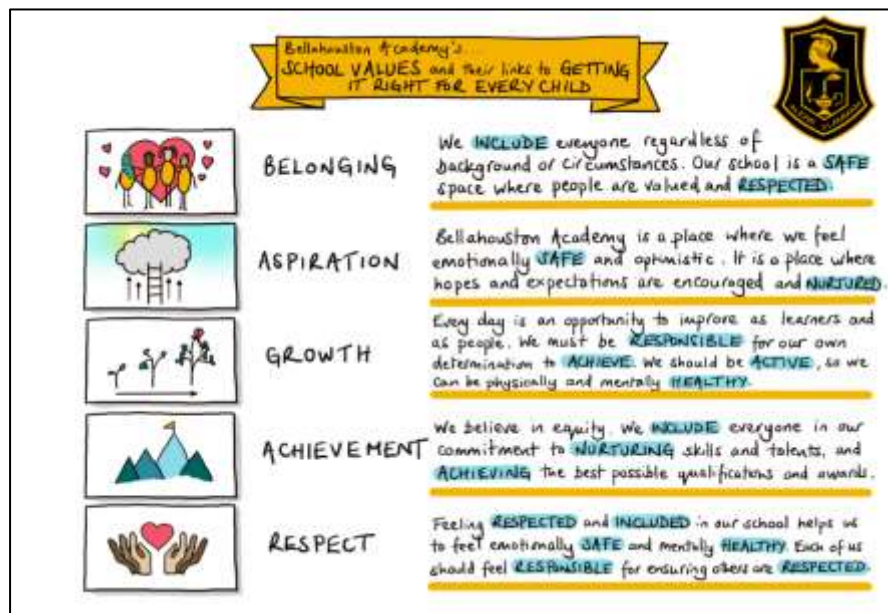 Bellahouston Academy's...
SCHOOL VALUES and their links to GETTING
IT RIGHT FOR EVERY CHILD
BELONGING
We INCLUDE everyone regardless of
background or circumstances. Our school is a SAFE
space where people are valued and RESPECTED.
ASPIRATION
Bellahouston Academy is a place where we feel
emotionally SAFE and optimistic. It is a place where
hopes and expectations are encouraged and NURTURED.
GROWTH
Every day is an opportunity to improve as learners and
as people. We must be RESPONSIBLE for our own
determination to ACHIEVE. We should be ACTIVE, so we
can be physically and mentally HEALTHY.
ACHIEVEMENT
We believe in equity. We INCLUDE everyone in our
commitment to NURTURING skills and talents, and
ACHIEVING the best possible qualifications and awards.
RESPECT
Feeling RESPECTED and INCLUDED in our school helps us
to feel emotionally SAFE and mentally HEALTHY. Each of us
should feel RESPONSIBLE for ensuring others are RESPECTED.